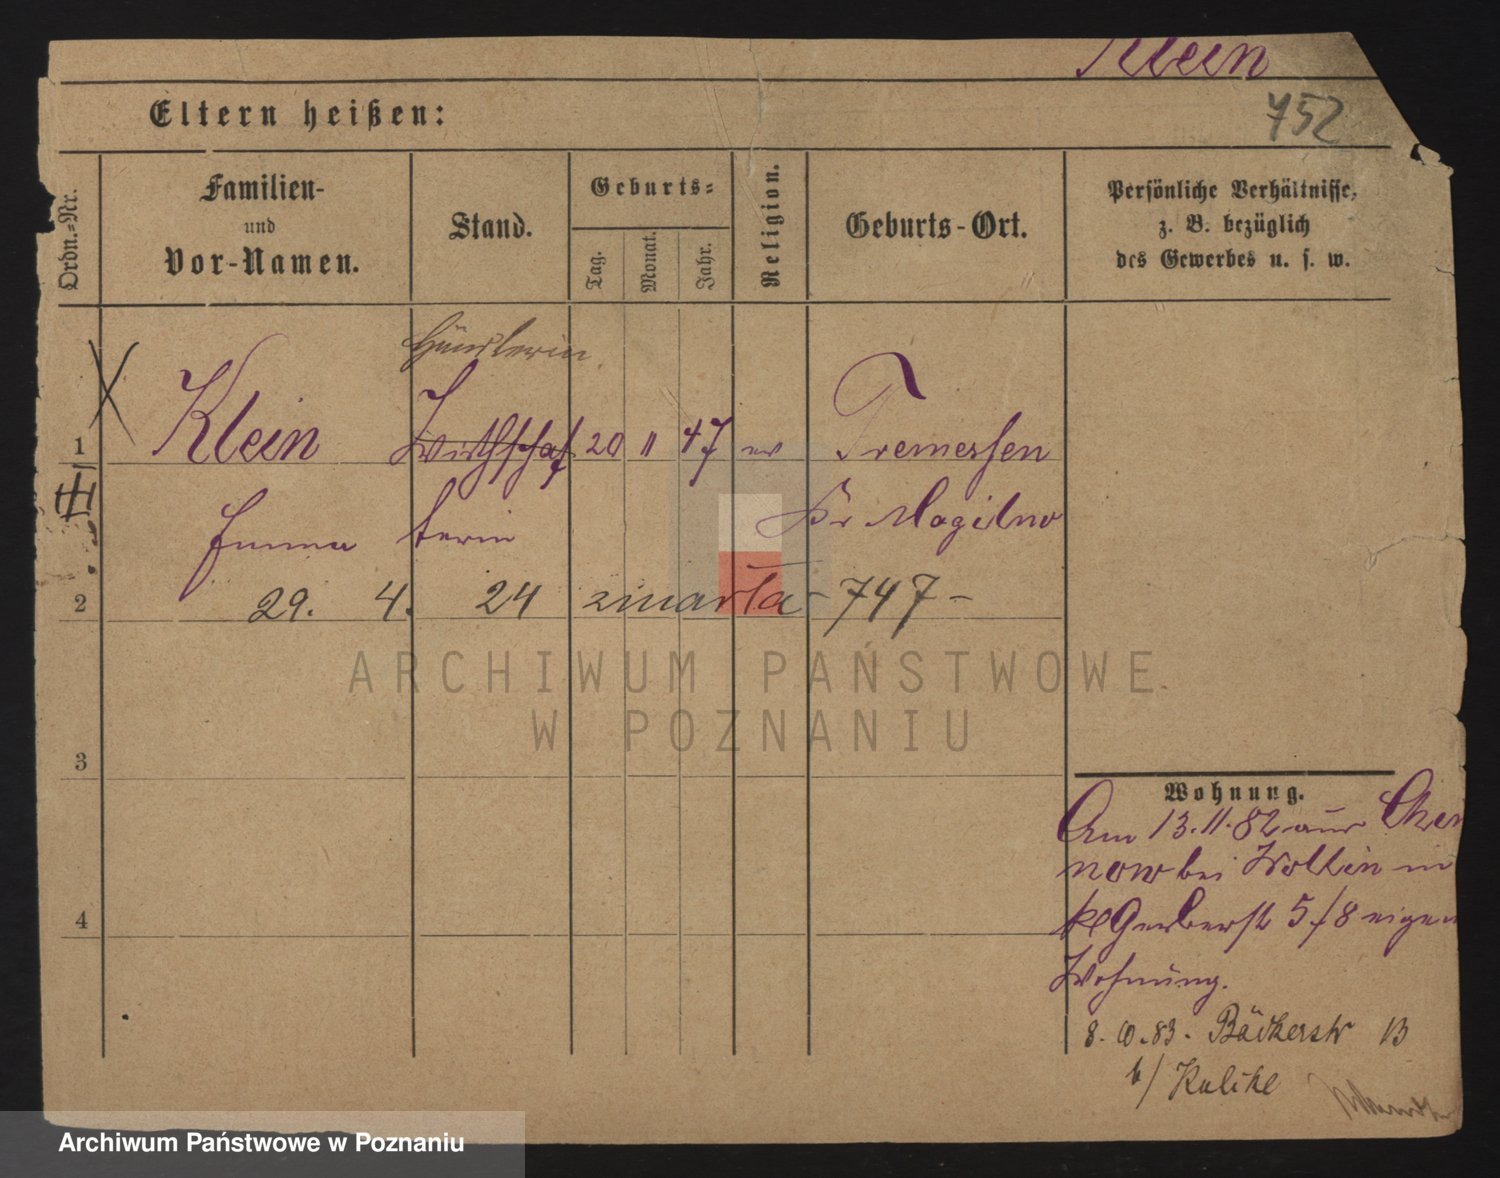 Klein
752
Eltern heißen:
Ordn.-Nr.
Familien-
und
Vor-Namen.
Stand.
Geburts-
Tag.
Monat.
Jahr.
Religion.
Geburts-Ort.
Persönliche Verhältnisse,
z. B. bezüglich
des Gewerbes u. s. w.
Händlerin
1 Klein Wirthschaf 20 11 47 ev Tremessen
Emma terin Kr Mogilno
2 29. 4. 24 zmarła - 747 -
3
4
Wohnung.
Am 13.11.82 aus
now bei Wollin in
kl Gerberst 5/8 eigen
Wohnung.
8. 83. Bäckerstr 13
b/
ARCHIWUM PAŃSTWOWE
W POZNANIU
Archiwum Państwowe w Poznaniu